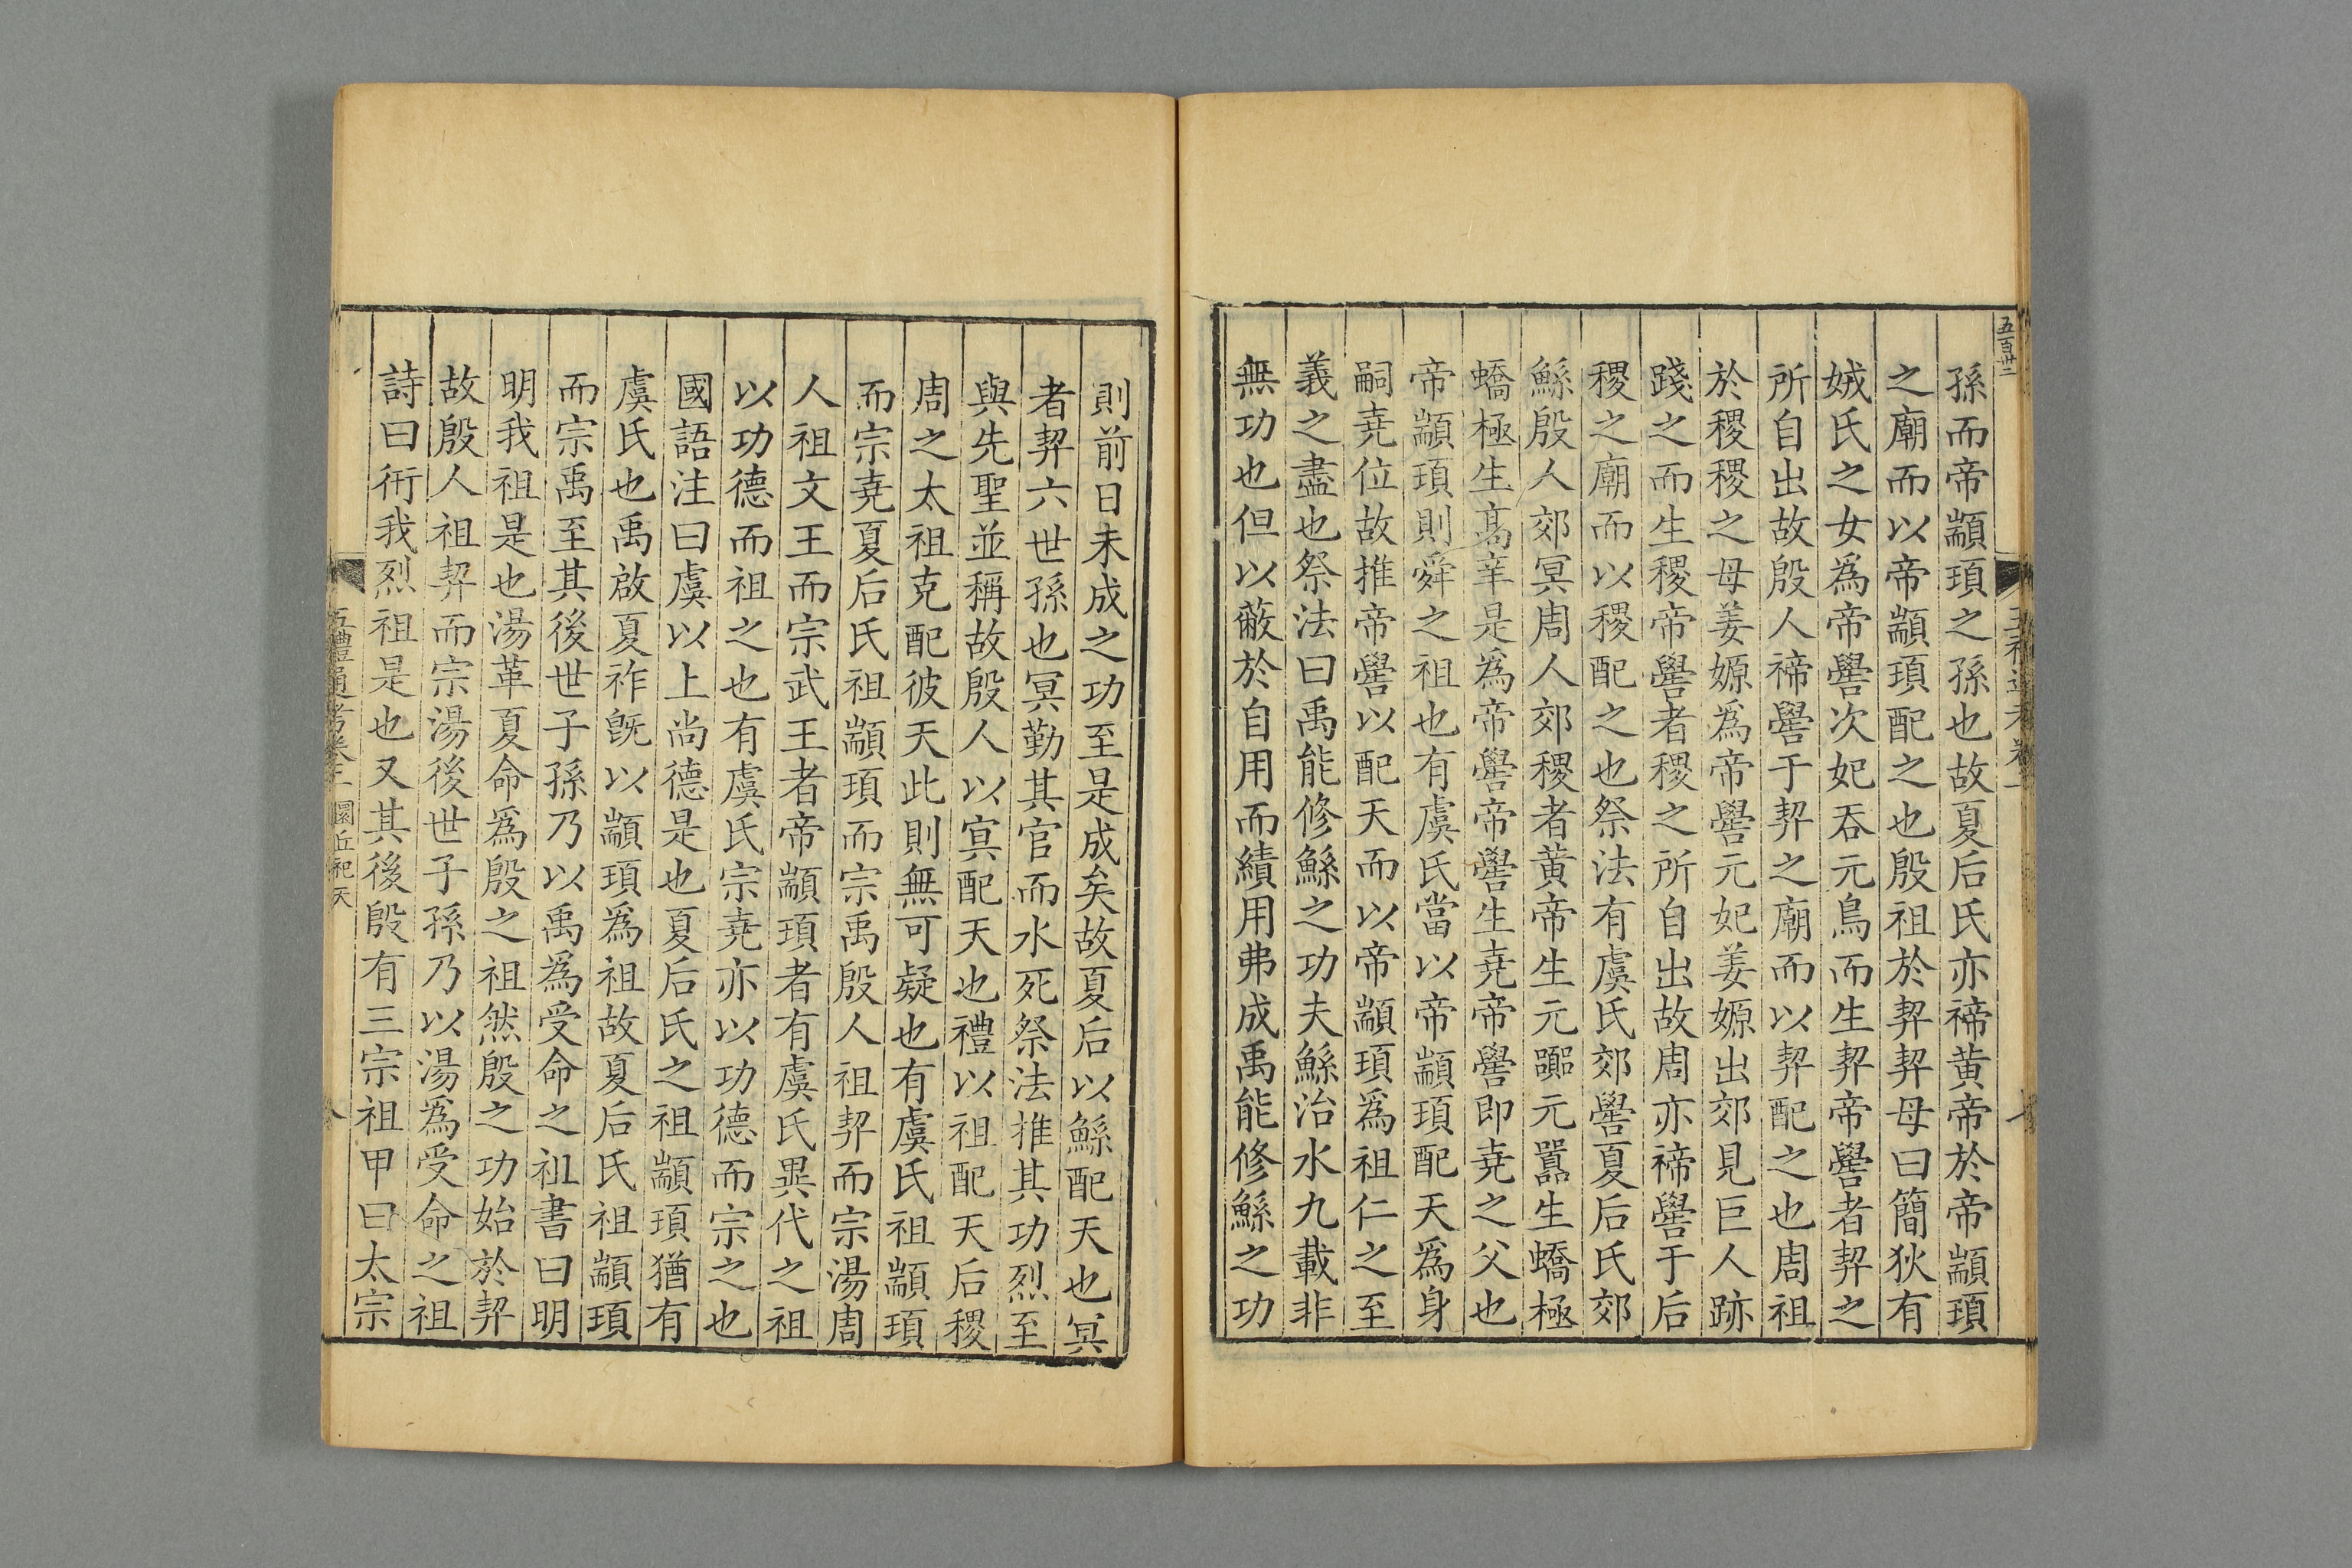 五百廿二
孫而帝顓頊之孫也故夏后氏亦禘黄帝於帝顓頊
之廟而以帝顓頊配之也殷祖於契契母曰簡狄有
娀氏之女爲帝嚳次妃吞元鳥而生契帝嚳者契之
所自出故殷人禘嚳于契之廟而以契配之也周祖
於稷稷之母姜嫄爲帝嚳元妃姜嫄出郊見巨人跡
踐之而生稷帝嚳者稷之所自出故周亦禘嚳于后
稷之廟而以稷配之也祭法有虞氏郊嚳夏后氏郊
鯀殷人郊冥周人郊稷者黄帝生元囂元囂生蟜極
蟜極生高辛是爲帝嚳帝嚳生尭帝嚳即尭之父也
帝顓頊則舜之祖也有虞氏當以帝顓頊配天爲身
嗣尭位故推帝嚳以配天而以帝顓頊爲祖仁之至
義之盡也祭法曰禹能修鯀之功夫鯀治水九載非
無功也但以蔽於自用而績用弗成禹能修鯀之功
則前日未成之功至是成矣故夏后以鯀配天也冥
者契六世孫也冥勤其官而水死祭法推其功烈至
與先聖並稱故殷人以冥配天也禮以祖配天后稷
周之太祖克配彼天此則無可疑也有虞氏祖顓頊
而宗尭夏后氏祖顓頊而宗禹殷人祖契而宗湯周
人祖文王而宗武王者帝顓頊者有虞氏異代之祖
以功德而祖之也有虞氏宗尭亦以功德而宗之也
國語注曰虞以上尚德是也夏后氏之祖顓頊猶有
虞氏也禹啟夏祚既以顓頊爲祖故夏后氏祖顓頊
而宗禹至其後世子孫乃以禹爲受命之祖書曰明
明我祖是也湯革夏命爲殷之祖然殷之功始於契
故殷人祖契而宗湯後世子孫乃以湯爲受命之祖
詩曰衎我烈祖是也又其後殷有三宗祖甲曰太宗
五禮通考卷 圜丘祀天